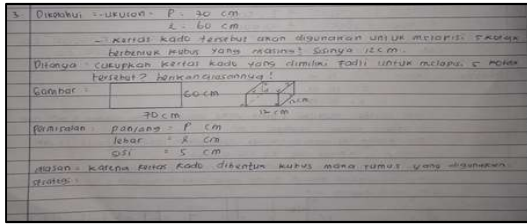 3. Diketahui : - ukuran - P = 70 cm
l = 60 cm
- kertas kado tersebut akan digunakan untuk melapisi 5 kotak
berbentuk kubus yang masing² sisinya 12 cm.
Ditanya : cukupkah kertas kado yang dimiliki Fadli untuk melapisi 5 kotak
tersebut? berikan alasannya!
Gambar :
60 cm
12 cm
70 cm
12 cm
Permisalan : panjang = P cm
lebar = l cm
sisi = s cm
alasan : karena kertas kado dibentuk kubus maka rumus yang digunakan
strategi :